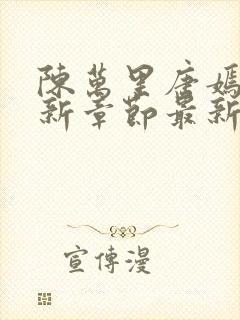 陳萬里唐嫣
新章節最新
宣傳漫